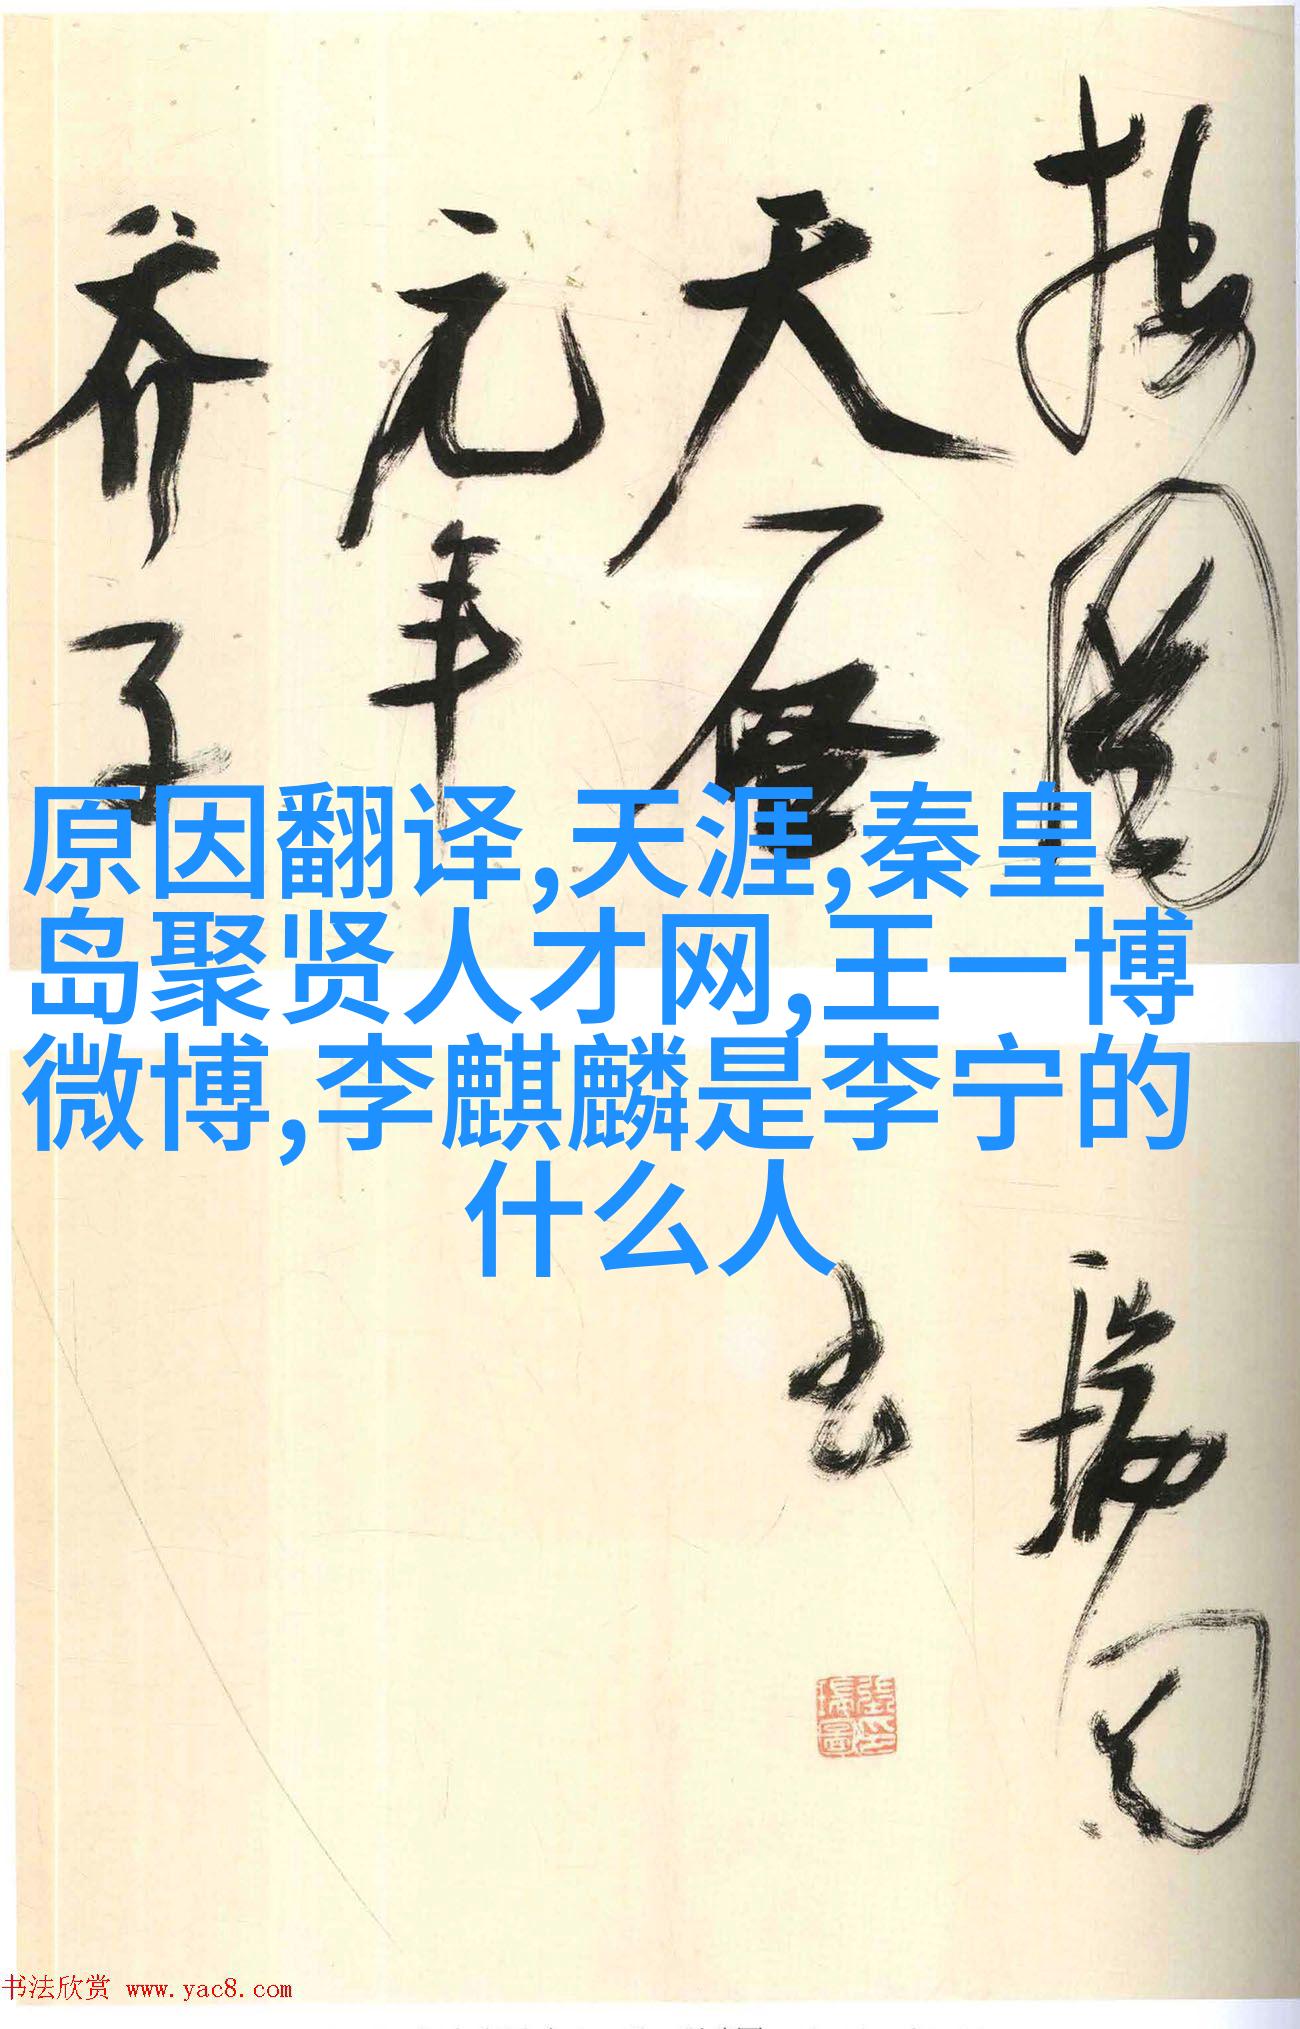 天启
元年
齐子
书
瑞图
原因翻译,天涯,秦皇
岛聚贤人才网,王一博
微博,李麒麟是李宁的
什么人
书法欣赏 www.yac8.com